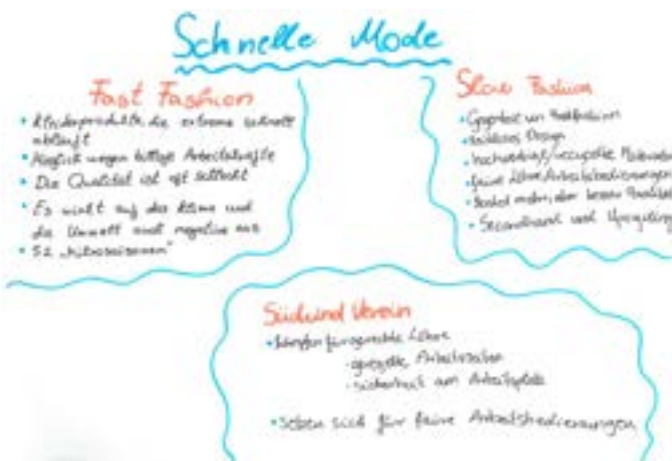 Schnelle Mode
Fast Fashion
• die extreme schnell
abläuft
• Möglich wegen billige Arbeitskräfte
• Die Qualität ist oft schlecht
• Es wirkt auf das Klima und
die Umwelt negative aus
• 52 „Mikrosaisonen"
Slow Fashion
• Gegenteil von
• Design
•
• faire Löhne, Arbeitsbedienungen
• aber besser Qualität
• Secondhand und Upcycling
Südwind Verein
• kämpfen für gerechte Löhne
- geregelte Arbeitszeiten
- sicherheit am Arbeitsplatz
• setzen sich für faire Arbeitsbedienungen